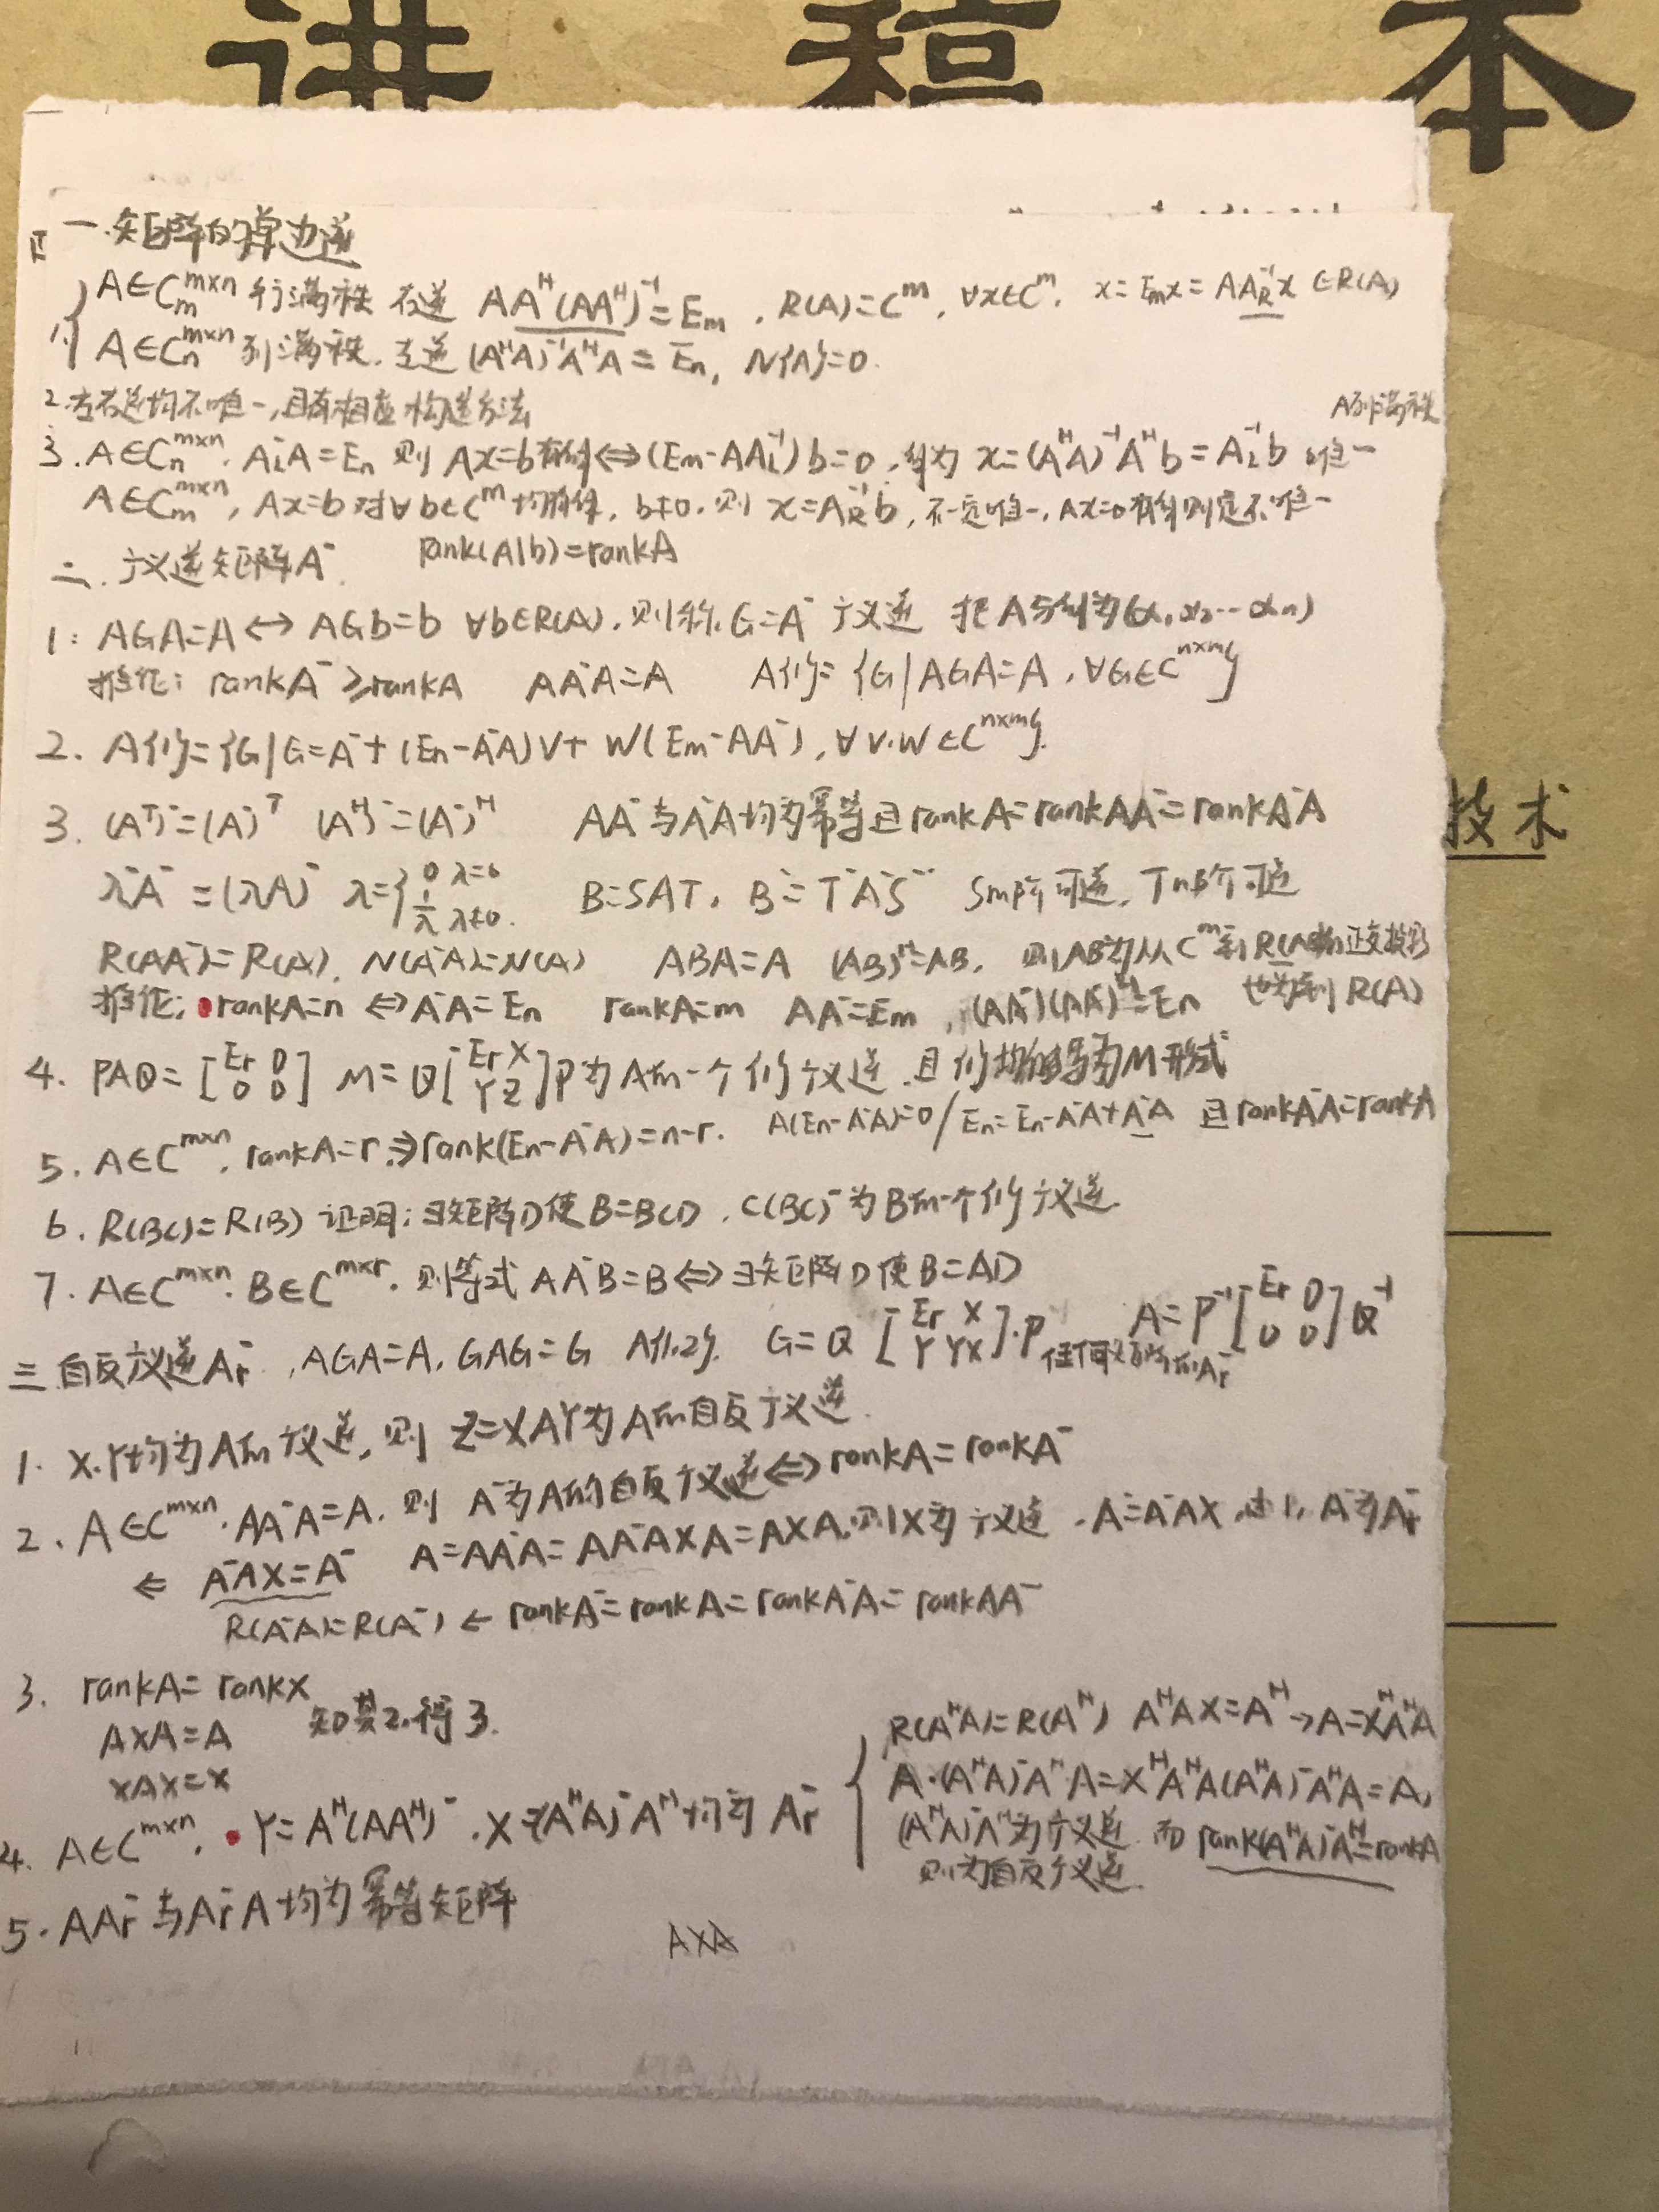 讲稿本
一.矩阵的单边逆
1.{ A∈C_m^{m×n} 行满秩 右逆 AA^H(AA^H)^{-1}=E_m , R(A)=C^m, ∀x∈C^m, x=E_mx=AA_R^{-1}x ∈R(A)
A∈C_n^{m×n} 列满秩. 左逆 (A^HA)^{-1}A^HA=E_n, N{A}=0.
2.左右逆均不唯一,且有相应构造方法
A列满秩
3. A∈C_n^{m×n}. A_L^{-1}A=E_n 则 Ax=b有解⇔(E_m-AA_L^{-1})b=0, 解为 x=(A^HA)^{-1}A^Hb=A_L^{-1}b 唯一
A∈C_m^{m×n}, Ax=b对∀b∈C^m均有解, b≠0, 则 x=A_R^{-1}b, 不一定唯一, Ax=0有解则定不唯一
二. 广义逆矩阵A^- rank(A|b)=rankA
1: AGA=A ↔ AGb=b ∀b∈R(A), 则称G=A^- 广义逆 把A写列为(α_1,α_2…α_n)
推论: rankA^-≥rankA AA^-A=A A{1}={G|AGA=A, ∀G∈C^{n×m}}
2. A{1}={G|G=A^-+(E_n-A^-A)V+W(E_m-AA^-), ∀V.W∈C^{n×m}}.
3. (A^T)^-=(A^-)^T (A^H)^-=(A^-)^H AA^-与A^-A均为幂等且rankA=rankAA^-=rankA^-A
λ^-A^-=(λA)^- λ^-={0 λ=0 1/λ λ≠0. B=SAT, B^-=T^-A^-S^- Sm阶可逆, Tn阶可逆
R(AA^-)=R(A), N(A^-A)=N(A) ABA=A (AB)^H=AB, 则AB为从C^m到R(AB)的正交投影
推论: rankA=n ⇔A^-A=E_n rankA=m AA^-=E_m, (AA^-)(AA^-)^H=E_n 也为到R(A)
4. PAQ=[E_r 0 0 0] M=Q[E_r X Y Z]P为A的一个{1}广义逆, 且{1}均能写为M形式
5. A∈C^{m×n}, rankA=r,⇒rank(E_n-A^-A)=n-r. A(E_n-A^-A)=0/E_n=E_n-A^-A+A^-A 且rankA^-A=rankA
6. R(BC)=R(B) 证明: ∃矩阵D使B=BCD, C(BC)^-为B的一个{1}广义逆.
7. A∈C^{m×n}. B∈C^{m×r}. 则等式 AA^-B=B⇔∃矩阵D使B=AD
三 自反广义逆A_r^-, AGA=A, GAG=G A{1,2} G=Q[E_r X Y YX].P A=P^{-1}[E_r 0 0 0]Q^{-1}
1. X.Y均为A的广义逆, 则 Z=XAY为A的自反广义逆.
2. A∈C^{m×n}. AA^-A=A. 则 A^-为A的自反广义逆⇔rankA=rankA^-
⇐ A^-AX=A^- A=AA^-A=AA^-AXA=AXA.则X为广义逆. A^-=A^-AX,由1, A^-为A_r^-
R(A^-A)=R(A^-) ← rankA^-=rankA=rankA^-A=rankAA^-
3. rankA=rankX
AXA=A 知其2.得3.
XAX=X
4. A∈C^{m×n}. Y=A^H(AA^H)^-. X=(A^HA)^-A^H均为A_r^-
{ R(A^HA)=R(A^H) A^HAX=A^H→A=X^HA^HA
A·(A^HA)^-A^HA=X^HA^HA(A^HA)^-A^HA=A,
(A^HA)^-A^H为广义逆 而 rank(A^HA)^-A^H=rankA
则为自反广义逆.
5. AA_r^-与A_r^-A均为幂等矩阵
AXA
技术